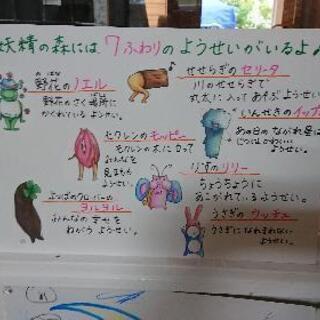 妖精の森には7ふわりのようせいがいるよ♪
野花のノエル
のばな
野花のさく場所に
かくれている ようせい。
せせらぎのセリータ
川のせせらぎで
丸太に入ってあそぶようせい
いんせきのイップ
あの日のながれ星は
じつは
ようせい
モクレンのモッピー
モクレンの木に立って
みんなを
見まもる
ようせい。
りすのリリー
ちょうちょうに
あこがれているようせい。
よつばのクローバーの
ヨルヨル
みんなの幸せを
ねがうようせい。
うさぎのウッチュ
うさぎになりきれない
ようせい。